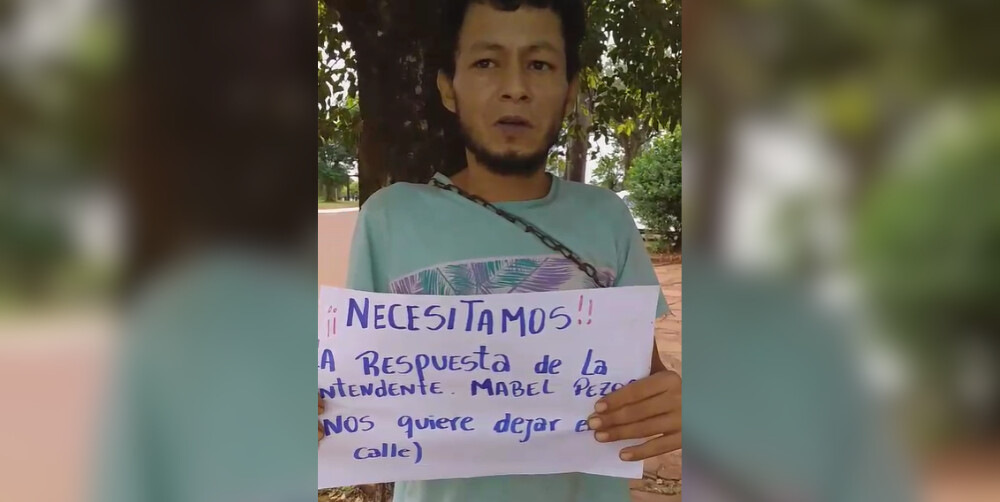 ¡¡NECESITAMOS!!
A RESPUESTA de La
NTENDENTE. MABEL
NOS quiere dejar
calle)